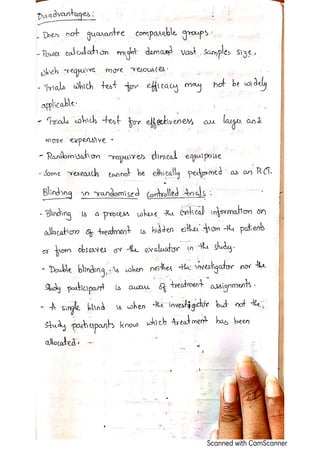 Disadvantages :
- Does not guarantre comparable groups.
- Power calculation might demand vast samples size,
which require more resources.
- Trials which test for efficacy may not be widely
applicable.
- Trials which test for effectiveness are larger and
more expensive.
- Randomisation requires clinical equipoise
- Some research cannot be ethically performed as an RCT.
Blinding in randomised controlled trials :
- Blinding is a process where the critical information on
allocation of treatment is hidden either from the patients
or from observes or the evaluator in the study.
- Double blinding, is when neither the investigator nor the
study participant is aware of treatment assignments.
- A single blind is when the investigator but not the,
study participants know which treatment has been
allocated.
Scanned with CamScanner